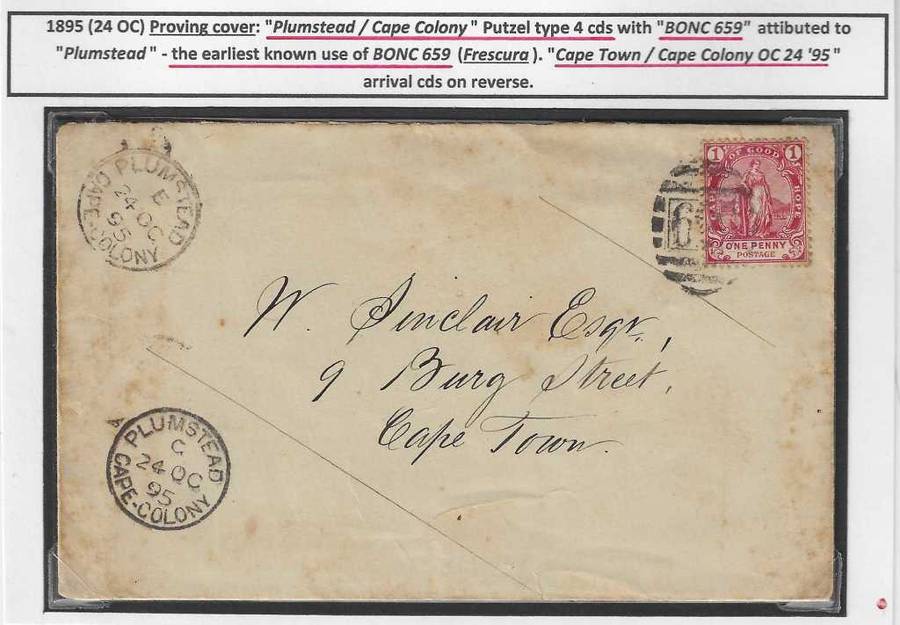 1895 (24 OC) Proving cover: "Plumstead / Cape Colony" Putzel type 4 cds with "BONC 659" attibuted to
"Plumstead" - the earliest known use of BONC 659 (Frescura). "Cape Town / Cape Colony OC 24 '95"
arrival cds on reverse.
PLUMSTEAD
E
24 OC
95
CAPE-COLONY
1 OF GOOD 1
CAPE
HOPE
ONE PENNY
POSTAGE
W. Sinclair Esqr.,
9 Burg Street,
Cape Town.
PLUMSTEAD
C
24 OC
95
CAPE-COLONY